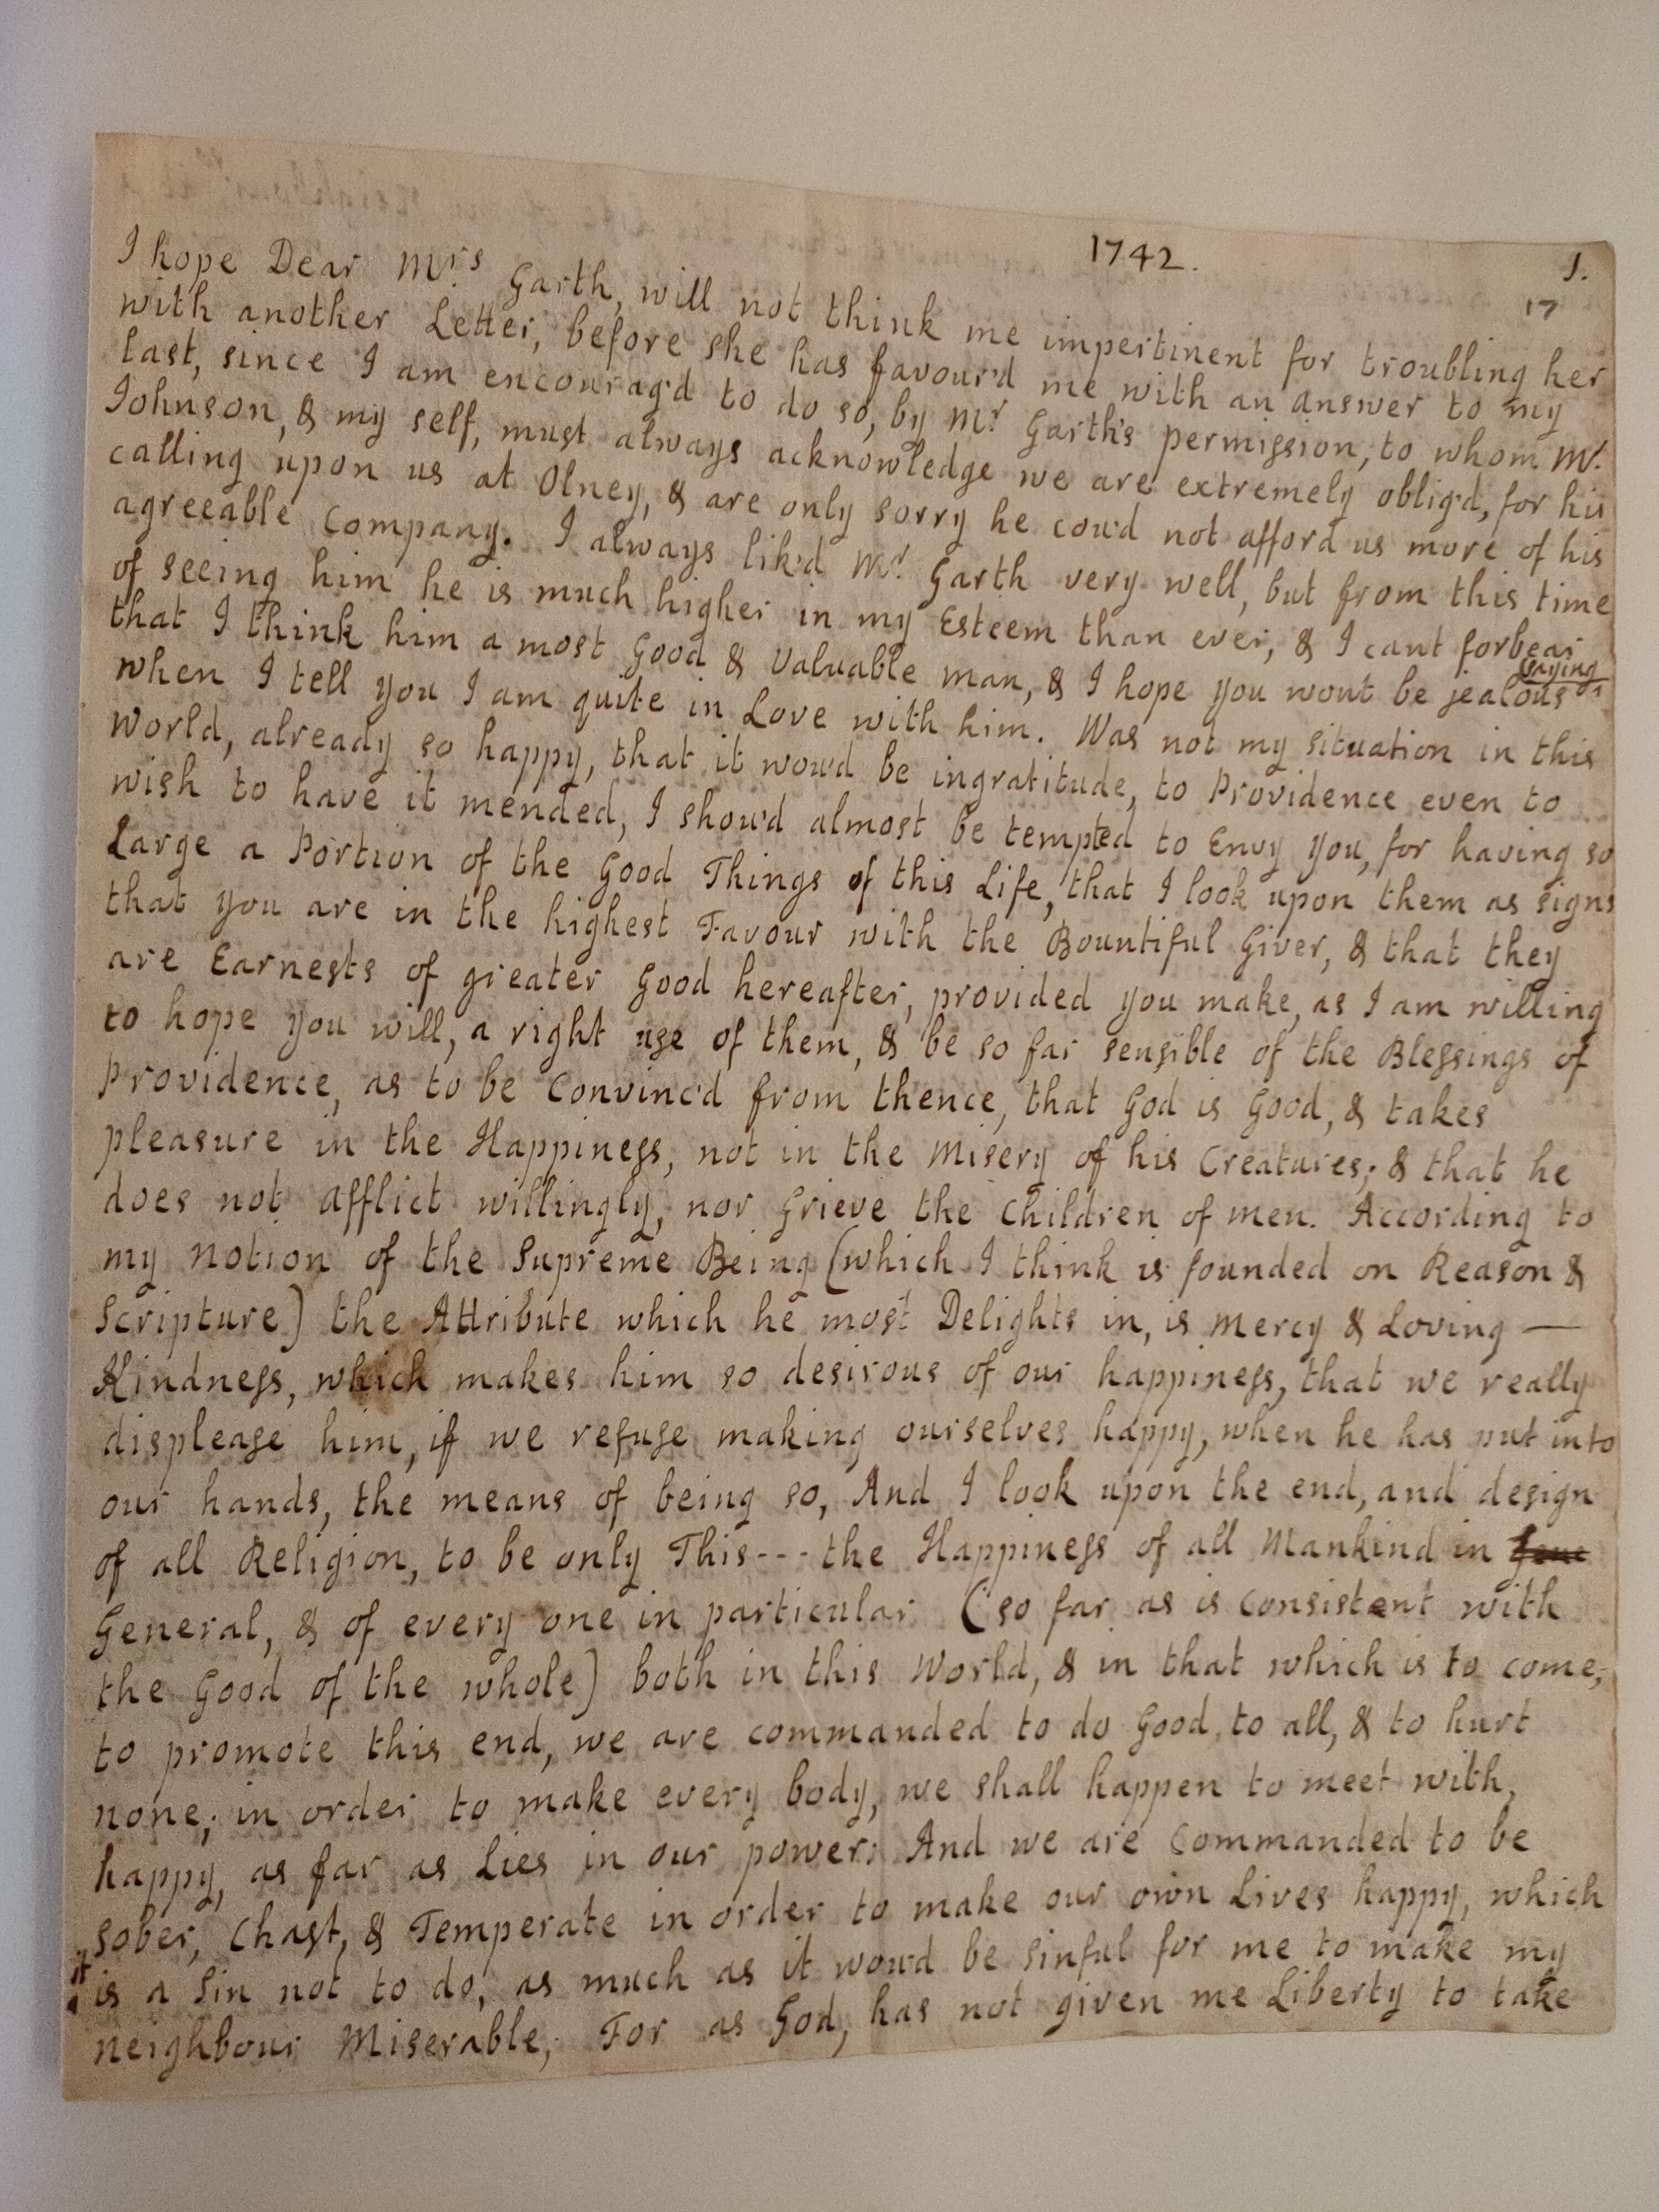 1742.
1.
17
I hope Dear Mrs Garth, will not think me impertinent for troubling her
with another Letter, before she has favour'd me with an answer to my
last, since I am encourag'd to do so, by Mr Garth's permission, to whom Mr.
Johnson, & my self, must always acknowledge we are extremely oblig'd, for his
calling upon us at Olney, & are only sorry he cou'd not afford us more of his
agreeable Company. I always lik'd Mr. Garth very well, but from this time
of seeing him he is much higher in my Esteem than ever, & I cant forbear
saying
that I think him a most Good & Valuable man, & I hope you wont be jealous
when I tell you I am quite in Love with him. Was not my situation in this
World, already so happy, that it wou'd be ingratitude, to Providence even to
wish to have it mended, I shou'd almost be tempted to Envy you, for having so
Large a Portion of the Good Things of this Life, that I look upon them as signs
that you are in the highest Favour with the Bountiful Giver, & that they
are Earnests of greater Good hereafter, provided you make, as I am willing
to hope you will, a right use of them, & be so far sensible of the Blessings of
Providence, as to be Convinc'd from thence, that God is Good, & takes
pleasure in the Happiness, not in the Misery of his Creatures; & that he
does not afflict willingly, nor Grieve the Children of men. According to
my Notion of the Supreme Being (which I think is founded on Reason &
Scripture) the Attribute which he most Delights in, is Mercy & Loving —
Kindness, which makes him so desirous of our happiness, that we really
displease him, if we refuse making ourselves happy, when he has put into
our hands, the means of being so, And I look upon the end, and design
of all Religion, to be only This --- the Happiness of all Mankind in Gene
General, & of every one in particular (so far as is Consistent with
the Good of the whole) both in this World, & in that which is to come;
to promote this end, we are commanded to do Good to all, & to hurt
none; in order to make every body, we shall happen to meet with,
happy, as far as Lies in our power: And we are Commanded to be
sober, Chast, & Temperate in order to make our own Lives happy, which
it
is a Sin not to do, as much as it wou'd be sinful for me to make my
neighbour Miserable; For as God, has not given me Liberty to take